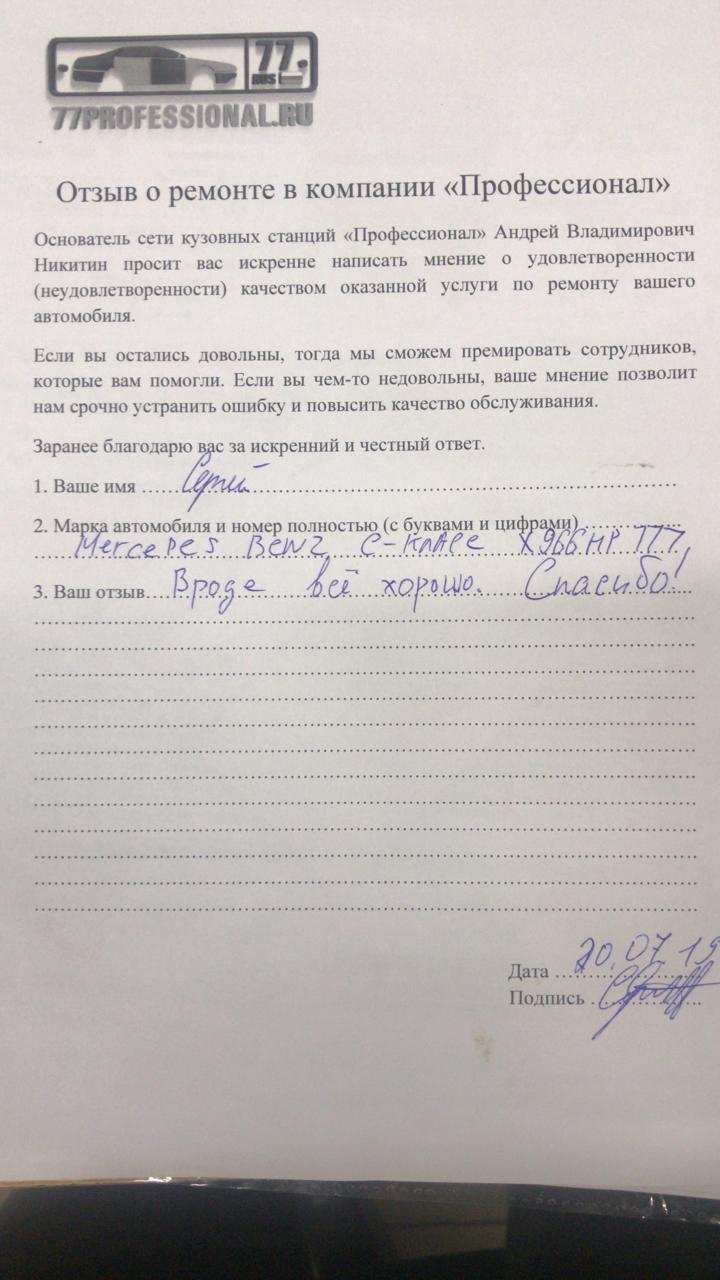 77
RUS
77PROFESSIONAL.RU
Отзыв о ремонте в компании «Профессионал»
Основатель сети кузовных станций «Профессионал» Андрей Владимирович
Никитин просит вас искренне написать мнение о удовлетворенности
(неудовлетворенности) качеством оказанной услуги по ремонту вашего
автомобиля.
Если вы остались довольны, тогда мы сможем премировать сотрудников,
которые вам помогли. Если вы чем-то недовольны, ваше мнение позволит
нам срочно устранить ошибку и повысить качество обслуживания.
Заранее благодарю вас за искренний и честный ответ.
1. Ваше имя Сергей
2. Марка автомобиля и номер полностью (с буквами и цифрами)
Mercedes Benz С-класс Х966НР 777
3. Ваш отзыв Вроде всё хорошо. Спасибо!
Дата 20.07.19
Подпись